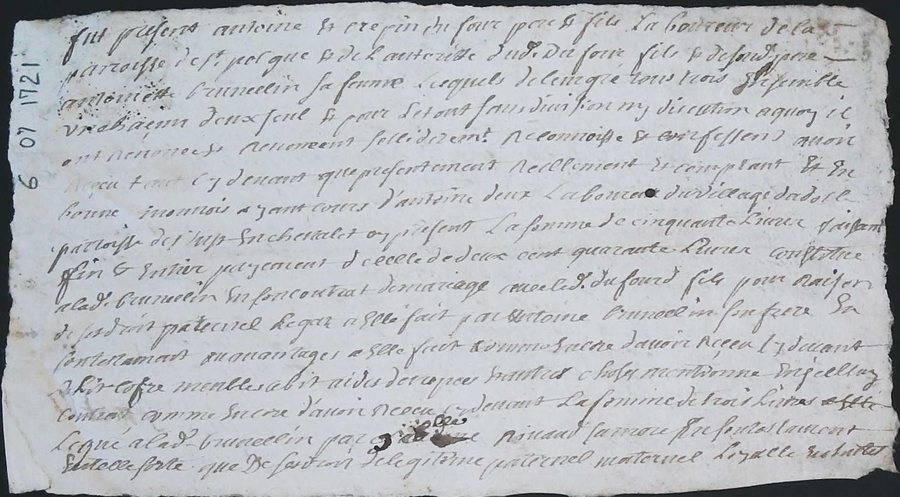 fut présent antoine & crepin du four pere & fils Laboureurs de la
parroisse de st pol que & de l'autoritte dud. du four fils & desond. pere
antoinette brunellin sa femme Lesquels de leur gré tous trois Ensemble
un chacun deux seul & pour Letout sans division ny discution aquoy il
ont renoncé & renoncent sollidairemt. Reconnoisse & confessent avoir
Receu tant Cy devant que presentement Reellement & comptant & En
bonne monnois ayant cours d'antoine deux Laboureur du village
parroisse de st just En chevalet cy present La somme de cinquante Livres faisant
fin & Entier payement de celle de deux cent quarante Livres constitué
alad. brunellin En son contrat demariage avec led. dufourd fils pour Raison
de ses droit paternel Legat a Elle fait par antoine brunellin son frere En
son testament avantages a Elle fait comme Encore d'avoir Receu Cy devant
Lhit cofre meubles abit & autres choses mentionné Ausd.
contrat comme Encore d'avoir Receu Cy devant La somme de trois Livres
Legué alad. brunellin par Rinaud sa mere En son testament
En telle sorte que de ses droit de legitime paternel maternel
6 07 1721